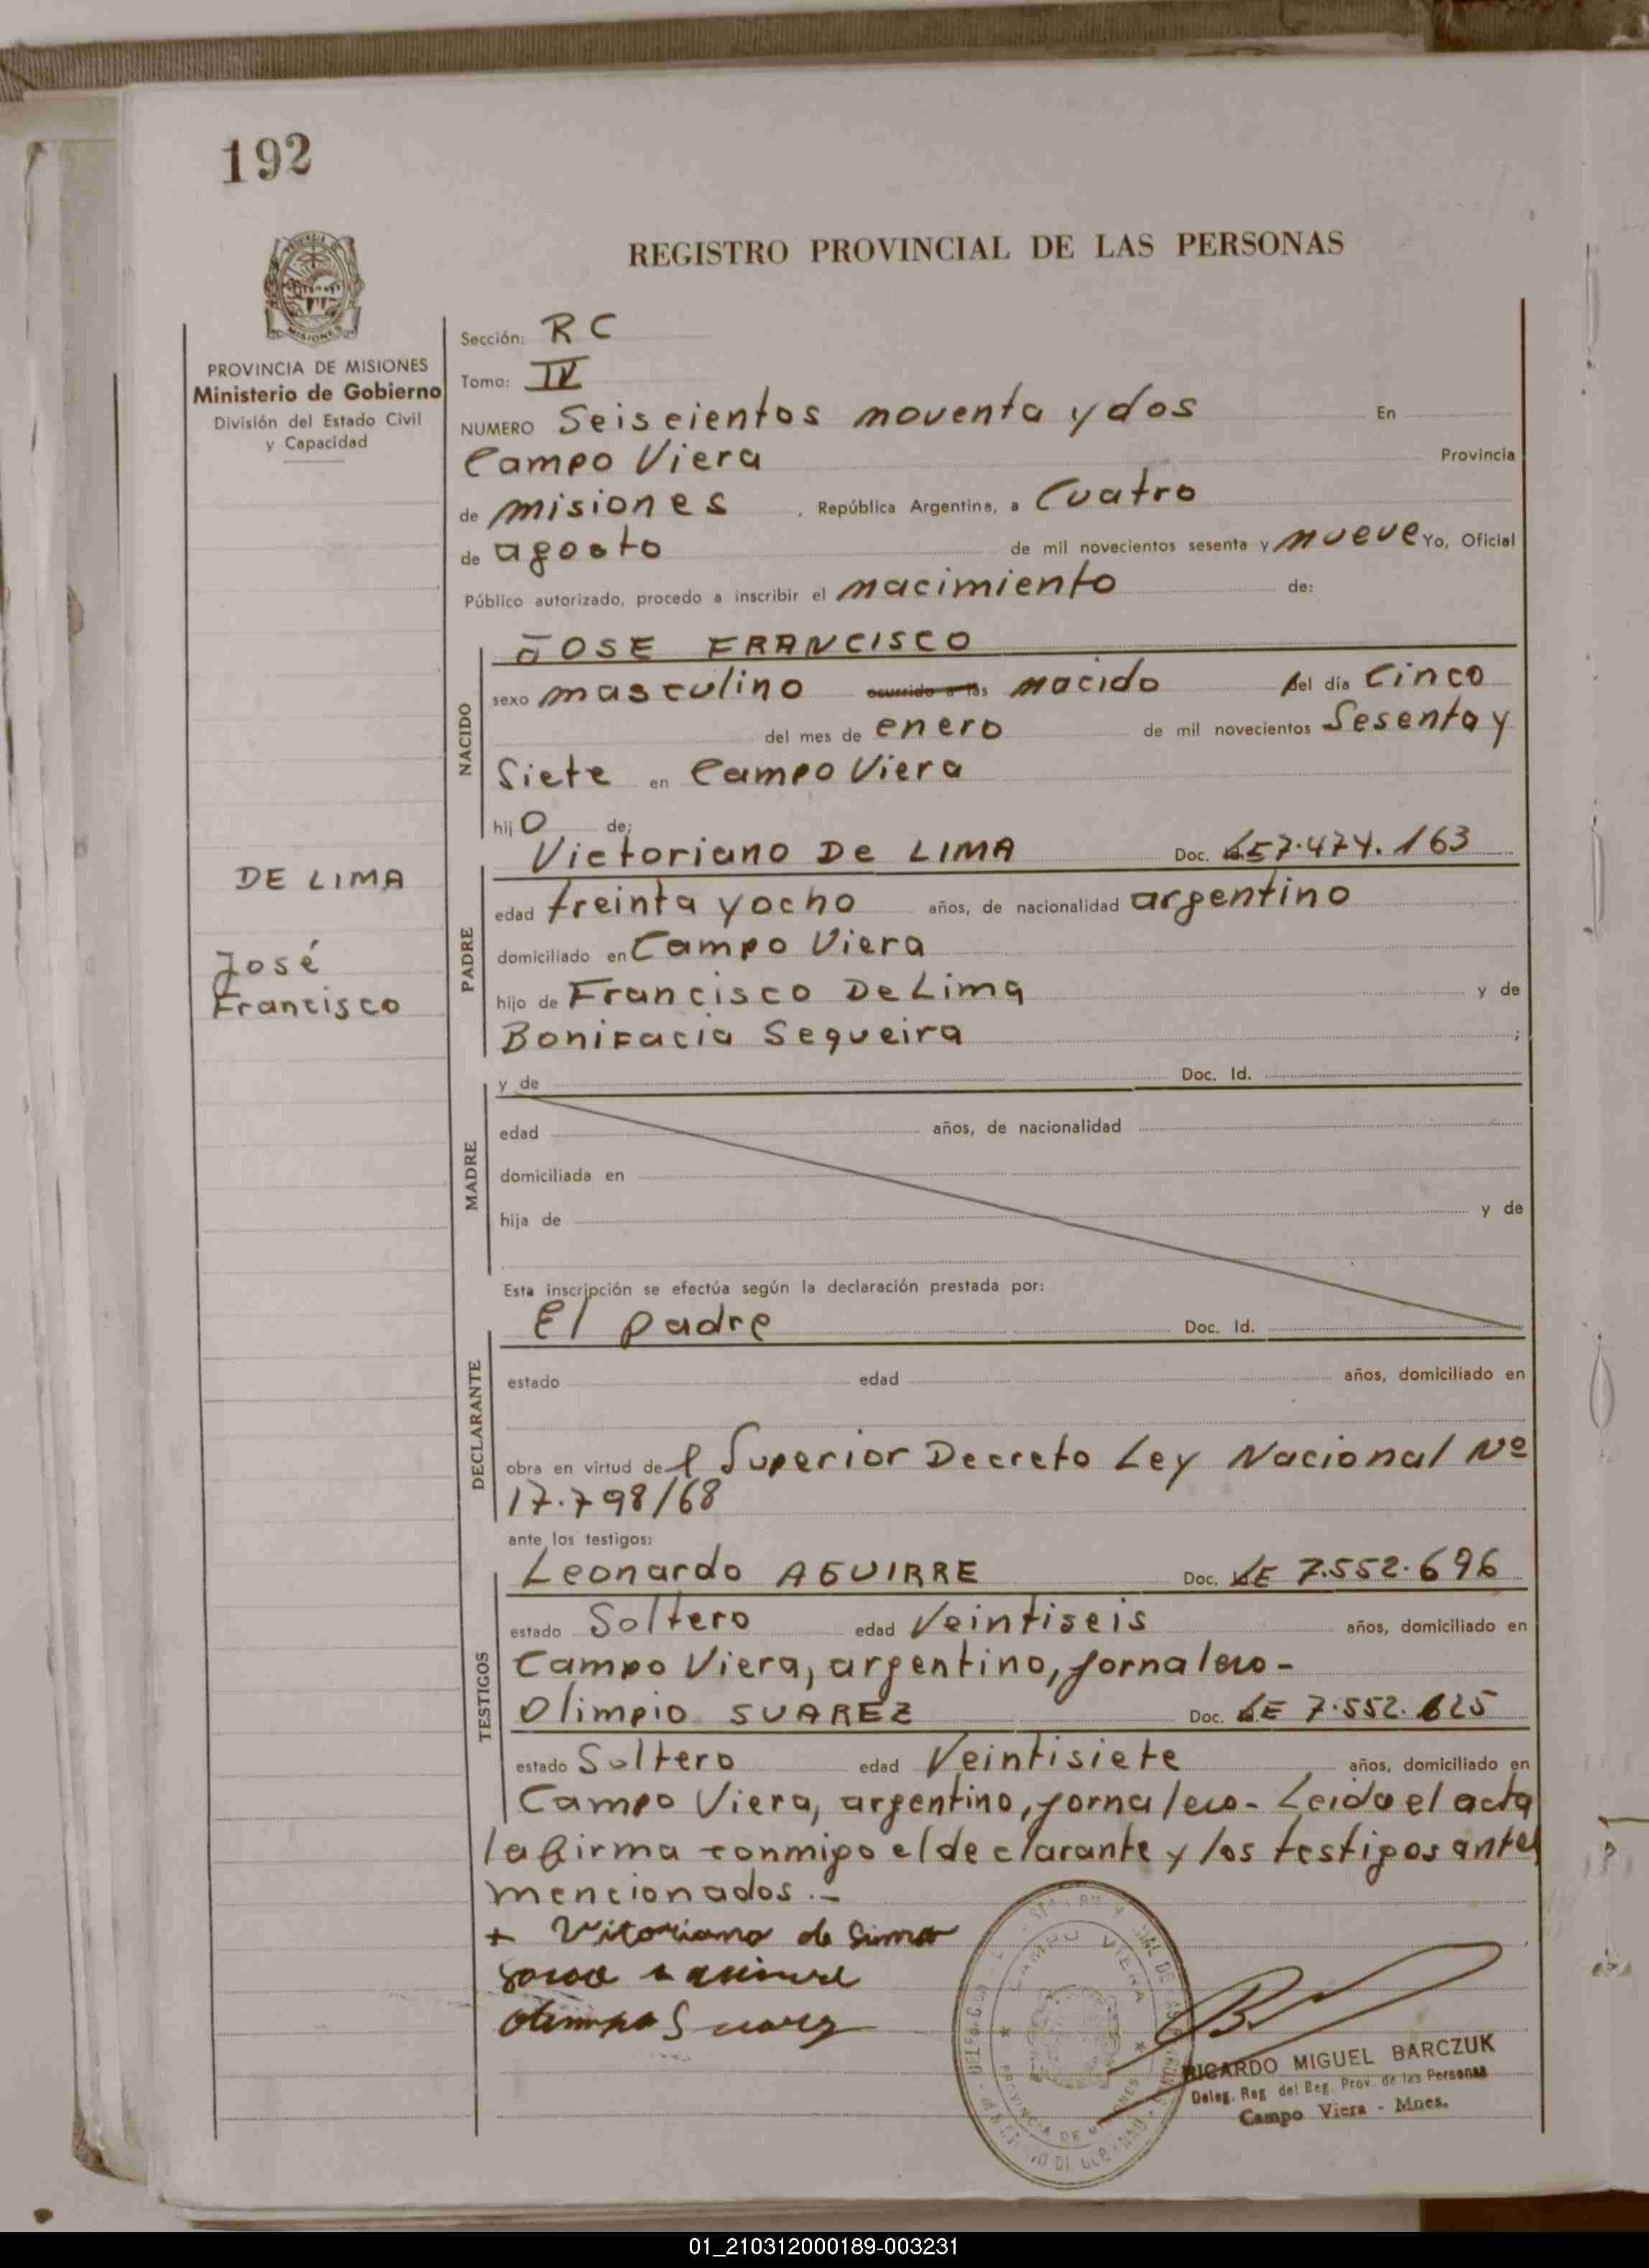 192
REGISTRO PROVINCIAL DE LAS PERSONAS
PROVINCIA DE MISIONES
Ministerio de Gobierno
División del Estado Civil
y Capacidad
Sección: R C
Tomo: IV
NUMERO Seiscientos noventa y dos En
Campo Viera Provincia
de misiones , República Argentina, a Cuatro
de agosto de mil novecientos sesenta y nueve Yo, Oficial
Público autorizado, procedo a inscribir el nacimiento de:
NACIDO
JOSE FRANCISCO
sexo masculino ocurrido a las nacido del día Cinco
del mes de enero de mil novecientos Sesenta y
Siete en Campo Viera
hijo de;
DE LIMA
José
Francisco
PADRE
Victoriano De LIMA Doc. 57.474.163
edad treinta y ocho años, de nacionalidad argentino
domiciliado en Campo Viera
hijo de Francisco De Lima y de
Bonifacia Sequeira ;
MADRE
y de Doc. Id.
edad años, de nacionalidad
domiciliada en
hija de y de
Esta inscripción se efectúa según la declaración prestada por:
DECLARANTE
El padre Doc. Id.
estado edad años, domiciliado en
obra en virtud del Superior Decreto Ley Nacional Nº
17.798/68
ante los testigos:
TESTIGOS
Leonardo AGUIRRE Doc. LE 7.552.696
estado Soltero edad Veintiseis años, domiciliado en
Campo Viera, argentino, jornalero-
Olimpio SUAREZ Doc. LE 7.552.625
estado Soltero edad Veintisiete años, domiciliado en
Campo Viera, argentino, jornalero- Leida el acta
la firma conmigo el declarante y los testigos antes
mencionados.-
+ Vitoriano de Lima
Olimpio Suarez
CAMPO VIERA
PROVINCIA DE MISIONES
RICARDO MIGUEL BARCZUK
Deleg. Reg. del Reg. Prov. de las Personas
Campo Viera - Mnes.
01_210312000189-003231